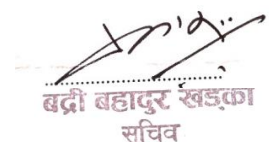 बद्री बहादुर खड्का
सचिव